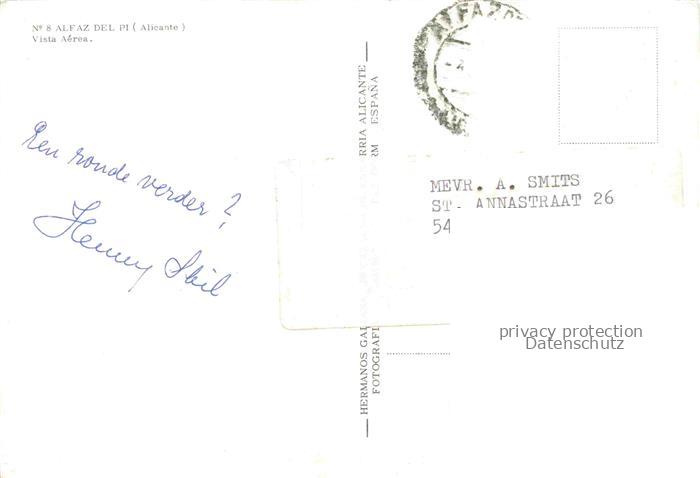 Nº 8 ALFAZ DEL PI ( Alicante )
Vista Aérea.
Een ronde verder ?
Henny
ALFAZ
RRIA ALICANTE
ESPAÑA
HERMANOS GAL
FOTOGRAFI
MEVR. A. SMITS
ST. ANNASTRAAT 26
54
privacy protection
Datenschutz